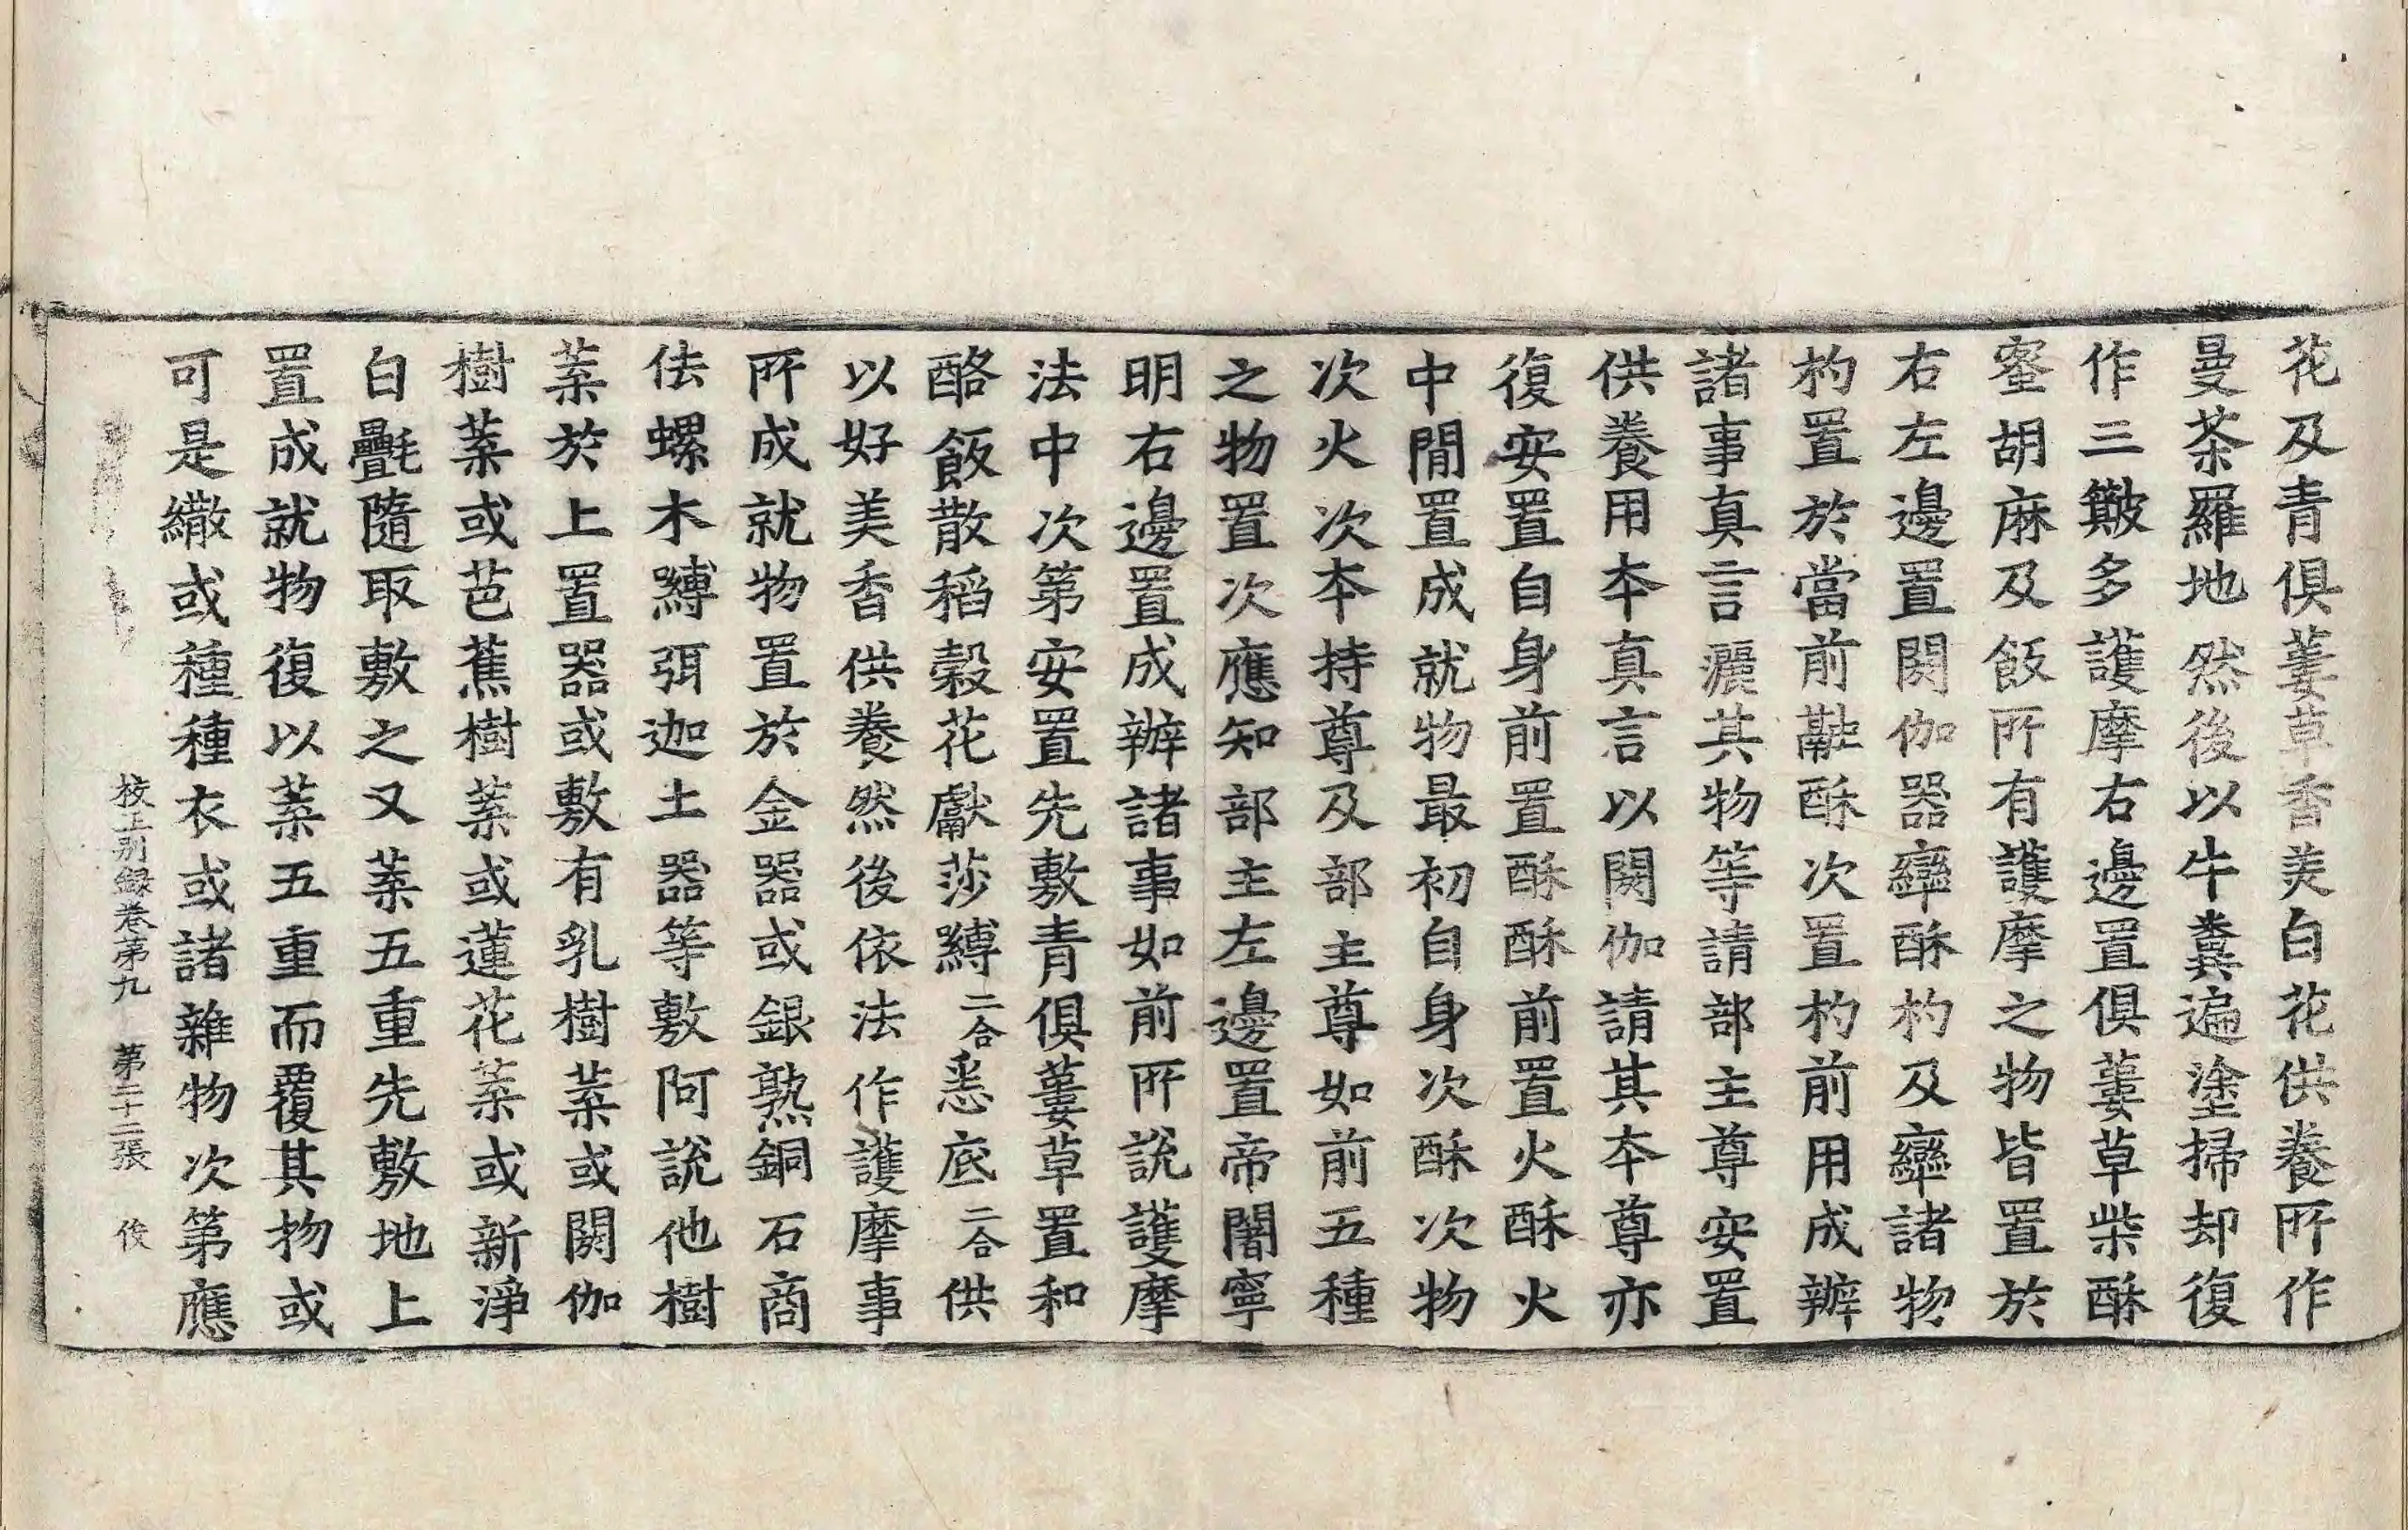 花及青俱蔞草香美白花供養所作
曼茶羅地然後以牛糞遍塗掃却復
作三簸多護摩右邊置俱蔞草柴酥
蜜胡麻及飯所有護摩之物皆置於
右左邊置閼伽器攣酥杓及攣諸物
杓置於當前融酥次置杓前用成辦
諸事真言灑其物等請部主尊安置
供養用本真言以閼伽請其本尊亦
復安置自身前置酥酥前置火酥火
中閒置成就物最初自身次酥次物
次火次本持尊及部主尊如前五種
之物置次應知部主左邊置帝闍寧
明右邊置成辦諸事如前所說護摩
法中次第安置先敷青俱蔞草置和
酪飯散稻穀花獻莎縛二合悉底二合供
以好美香供養然後依法作護摩事
所成就物置於金器或銀熟銅石商
佉螺木嚩弭迦土器等敷阿說他樹
葉於上置器或敷有乳樹葉或閼伽
樹葉或芭蕉樹葉或蓮花葉或新淨
白㲲隨取敷之又葉五重先敷地上
置成就物復以葉五重而覆其物或
可是繖或種種衣或諸雜物次第應
校正別録卷第九 第二十二張 俊